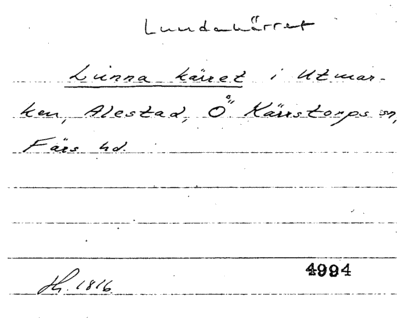 Lundakärret
Linna kärret i Utmar-
ken, Alestad, Ö Kärrstorps sn,
Färs hd
Hh. 1816
4994